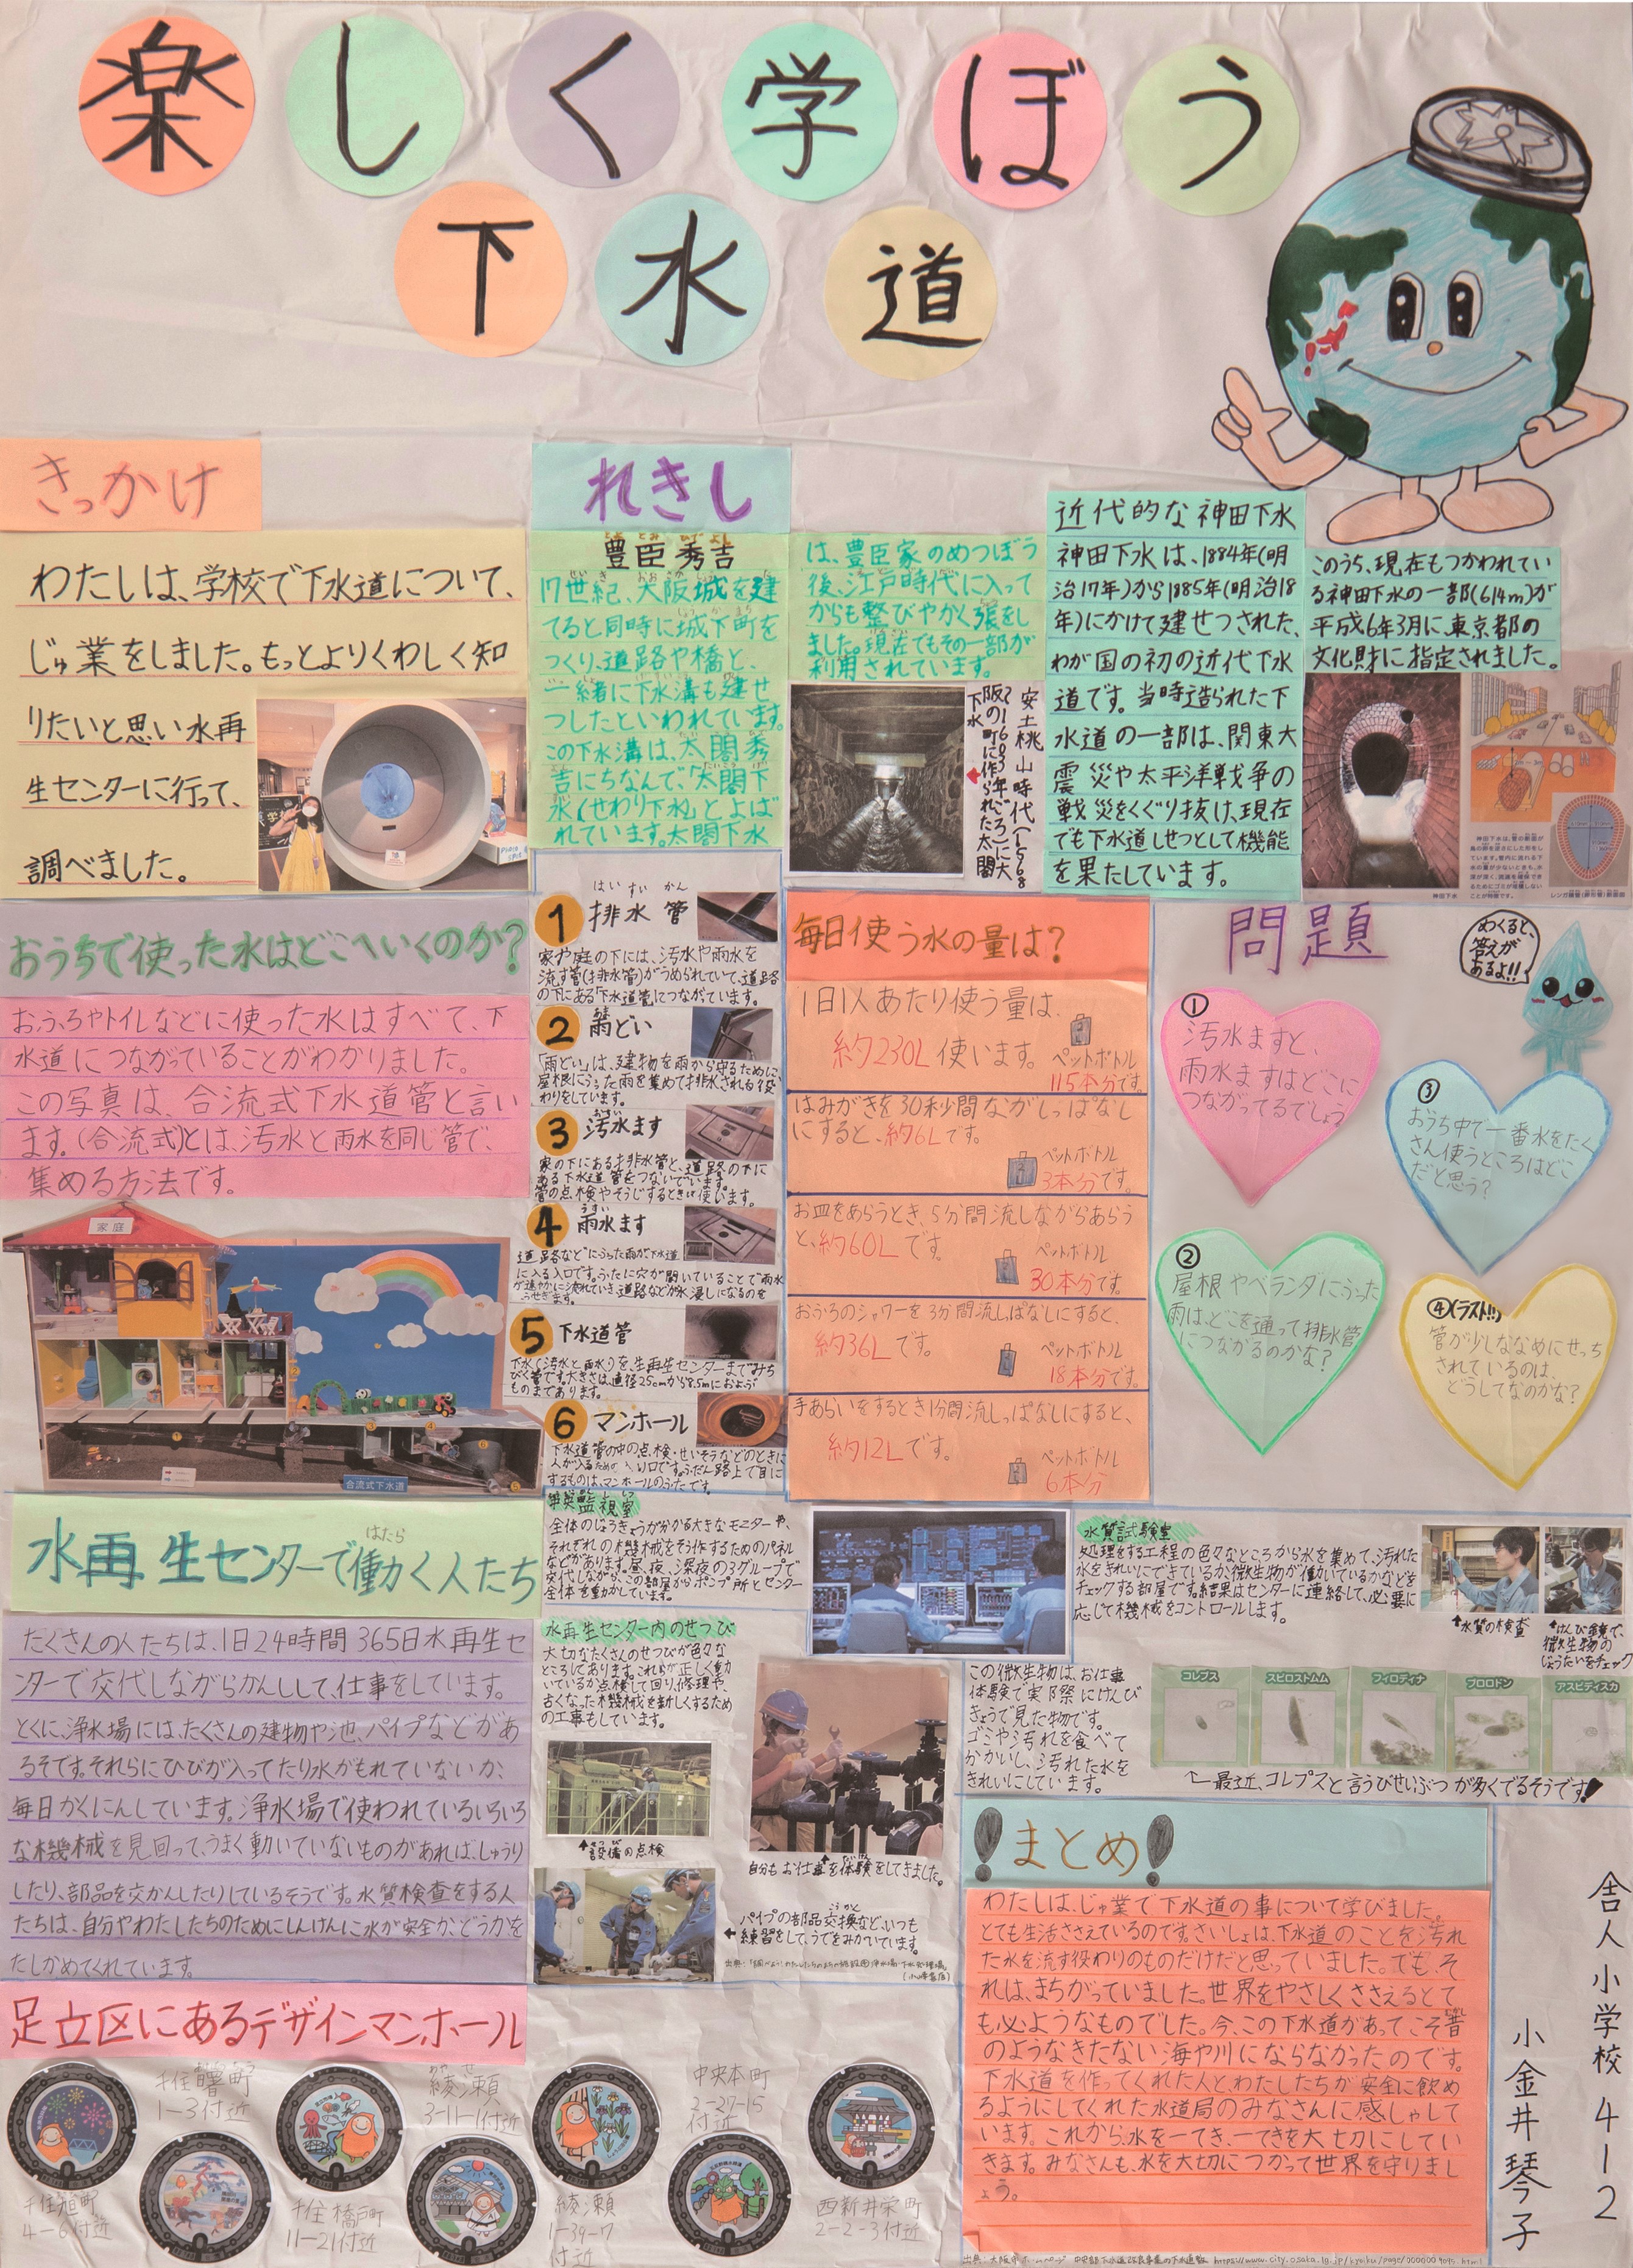 楽しく学ぼう
下水道
きっかけ
わたしは、学校で下水道について、
じゅ業をしました。もっとよりくわしく知
りたいと思い水再
生センターに行って、
調べました。
れきし
豊臣秀吉
17世紀、大阪城を建
てると同時に城下町を
つくり、道路や橋と、
一緒者に下水溝も建せ
つしたといわれています。
この下水溝は、太閤秀
吉にちなんで、「太閤下
水(せわり下水)」とよば
れています。太閤下水
は、豊臣家のめつぼう
後、江戸時代に入って
からも整びやかく張をし
ました。現在でもその一部が
利用されています。
安土桃山時代(1568
~1603年ごろ)に大
阪の町に作られた太閤
下水
近代的な神田下水
神田下水は、1884年(明
治17年)から1885年(明治18
年)にかけて建せつされた、
わが国の初の近代下水
道です。当時造られた下
水道の一部は、関東大
震災や太平洋戦争の
戦災をくぐり抜け、現在
でも下水道しせつとして機能
を果たしています。
このうち、現在もつかわれてい
る神田下水の一部(614m)が
平成6年3月に、東京都の
文化財に指定されました。
神田下水
レンガ積管(卵形管)断面図
おうちで使った水はどこへいくのか?
おふろやトイレなどに使った水はすべて、下
水道につながっていることがわかりました。
この写真は、合流式下水道管と言い
ます。(合流式)とは、汚水と雨水を同じ管で、
集める方法です。
家庭
合流式下水道
はいすいかん
1 排水管
家や庭の下には、汚水や雨水を
流す管(排水管)がうめられていて、道路
の下にある「下水道管」につながています。
2 雨どい
「雨どい」は、建物を雨から守るために、
屋根にふった雨を集めて排水される役
わりをしています。
3 汚水ます
家の下にある排水管と、道路の下に
ある下水道管をつないでいます。
管の点検やそうじするときに使います。
4 雨水ます
道路などにふった雨が、下水道
に入る入口です。ふたに穴が開いていることで雨水
が速やかに流れていき、道路などが水浸しになるのを
ふせぎます。
5 下水道管
下水(汚水と雨水)を、生再生センターまでみち
びく管です。大きさは、直径25cmから8.5mにおよぶ
ものまであります。
6 マンホール
下水道管の中の点検・せいそうなどのときに
人が入るための入り口です。ふだん路上で目に
するものは、マンホールのふたです。
毎日使う水の量は?
1日1人あたり使う量は、
約230L使います。
ペットボトル
115本分です。
はみがきを30秒間ながしっぱなし
にすると、約6Lです。
ペットボトル
3本分です。
お皿をあらうとき、5分間流しながらあらう
と、約60Lです。
ペットボトル
30本分です。
おふろのシャワーを3分間流しぱなしにすると、
約36Lです。
ペットボトル
18本分です。
手あらいをするとき1分間流しっぱなしにすると、
約12Lです。
ペットボトル
6本分
問題
めくると、
答えが
あるよ!!
①
汚水ますと、
雨水ますはどこに
つながってるでしょう
③
おうち中で一番水をたく
さん使うところはどこ
だと思う?
②
屋根やベランダにふった
雨は、どこを通って排水管
につながるのかな?
④(ラスト!!)
管が少しななめにせっち
されているのは、
どうしてなのかな?
水再生センターで働く人たち
たくさんの人たちは、1日24時間365日水再生セ
ンターで交代しながらかんしして、仕事をしています。
とくに、浄水場には、たくさんの建物や池、パイプなどがあ
るそです。それらにひびが入ってたり水がもれていないか、
毎日かくにんしています。浄水場で使われているいろいろ
な機械を見回って、うまく動いていないものがあれば、しゅうり
したり、部品を交かんしたりしているそうです。水質検査をする人
たちは、自分やわたしたちのためにしんけんに水が安全か、どうかを
たしかめてくれています。
監視室
全体のじょうきょうが分かる大きなモニターや、
それぞれの機械をそう作するためのパネル
などがあります。昼、夜、深夜の3グループで
交代しながら、この部屋からポンプ所とセンター
全体を動かしています。
水再生センター内のせつび
大切なたくさんのせつびが色々な
ところにあります。これらが正しく動
いているか点検して回り、修理や、
古くなった機械を新しくするため
の工事もしています。
↑設備の点検
自分もお仕事を体験をしてきました。
パイプの部品交換など、いつも
練習をして、うでをみがいています。
水質試験室
処理をする工程の色々なところから水を集めて、汚れた
水をきれいにできているか、微生物が働いているかなどを
チェックする部屋です。結果はセンターに連絡して、必要に
応じて機械をコントロールします。
↑水質の検査
↑けんび鏡で、
微生物の
じょうたいをチェック
この微生物は、お仕事
体験で実際にけんび
きょうで見た物です。
ゴミや汚れを食べて
かかいし、汚れた水を
きれいにしています。
コレプス
スピロストムム
フィロディナ
プロロドン
アスピディスカ
↑最近、コレプスと言うびせいぶつが多くでるそうです!
まとめ
わたしは、じゅ業で下水道の事について学びました。
とても生活ささえているのです。さいしょは、下水道のことを汚れ
た水を流す役わりのものだけだと思っていました。でも、そ
れは、まちがっていました。世界をやさしくささえるとて
も必ようなものでした。今、この下水道があってこそ昔
のようなきたない海や川にならなかったのです。
下水道を作ってくれた人と、わたしたちが安全に飲め
るようにしてくれた水道局のみなさんに感しゃして
います。これから、水を一てき、一てきを大切にしてい
きます。みなさんも、水を大切につかって世界を守りまし
ょう。
舎人小学校 4-2
小金井琴子
足立区にあるデザインマンホール
千住曙町
1-3付近
綾瀬
3-11-1付近
中央本町
2-27-15
付近
4-6付近
千住橋戸町
11-21付近
綾瀬
1-39-7
付近
西新井栄町
2-2-3付近